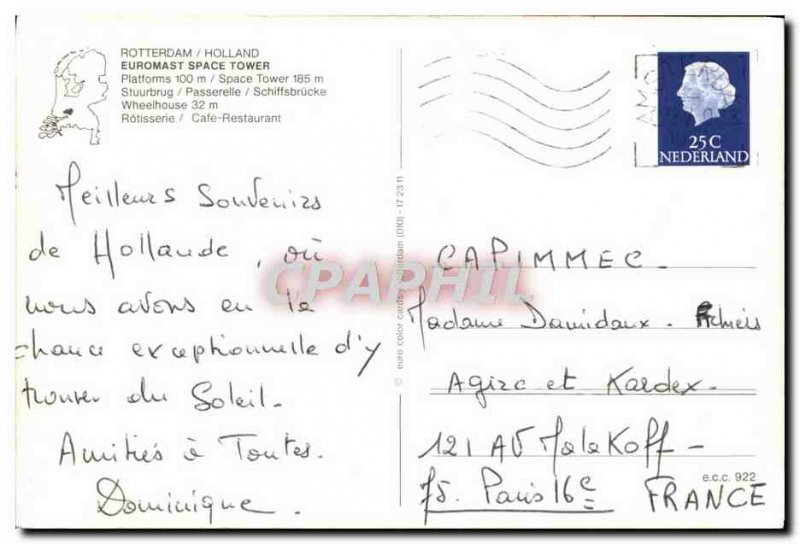 ROTTERDAM / HOLLAND
EUROMAST SPACE TOWER
Platforms 100 m / Space Tower 185 m
Stuurbrug / Passerelle / Schiffsbrücke
Wheelhouse 32 m
Rôtisserie / Café-Restaurant
Meilleurs Souvenirs
de Hollande, où
nous avons eu la
chance exceptionnelle d'y
trouver du Soleil.
Amitiés à Toutes.
Dominique.
© euro color cards - rotterdam (010) - 17 23 11
CPAPHIL
25 C
NEDERLAND
CAPIMMEC.
Madame Damidaux.
Agirc et Kardex.
121 AV Malakoff -
75. Paris 16e
FRANCE
e.c.c. 922